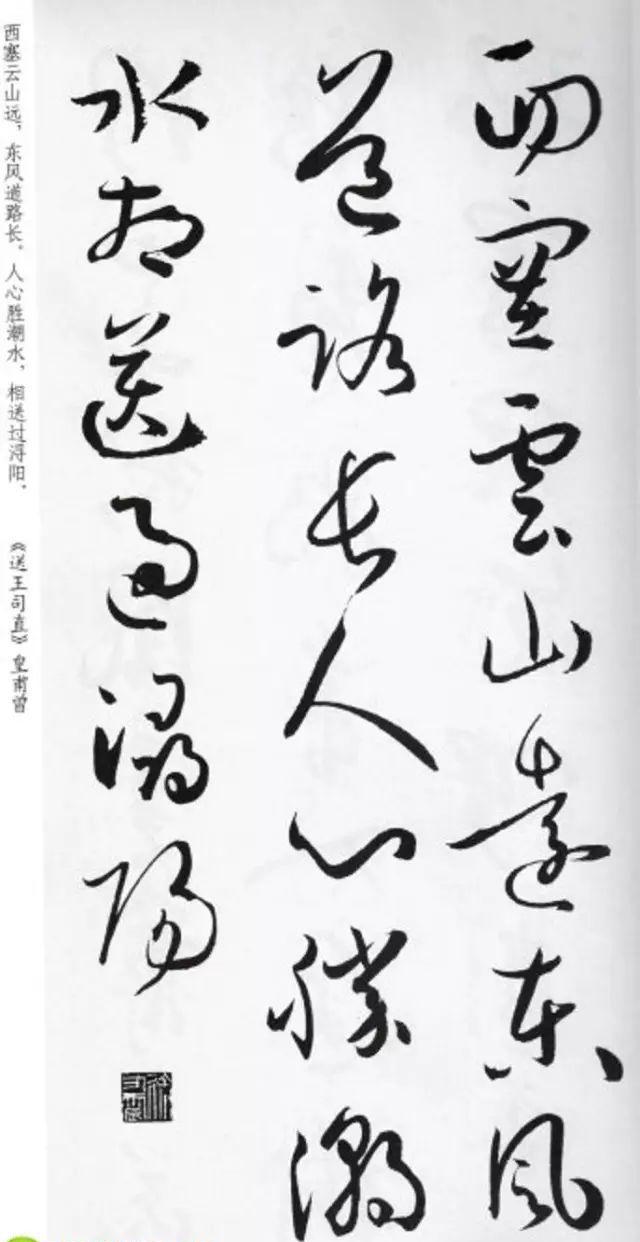 西塞雲山遠東風
道路長人心勝潮
水相送過潯陽
西塞云山远，东风道路长。人心胜潮水，相送过浔阳。 《送王司直》皇甫曾